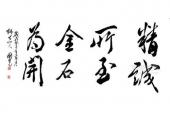 精诚
所至
金石
為開